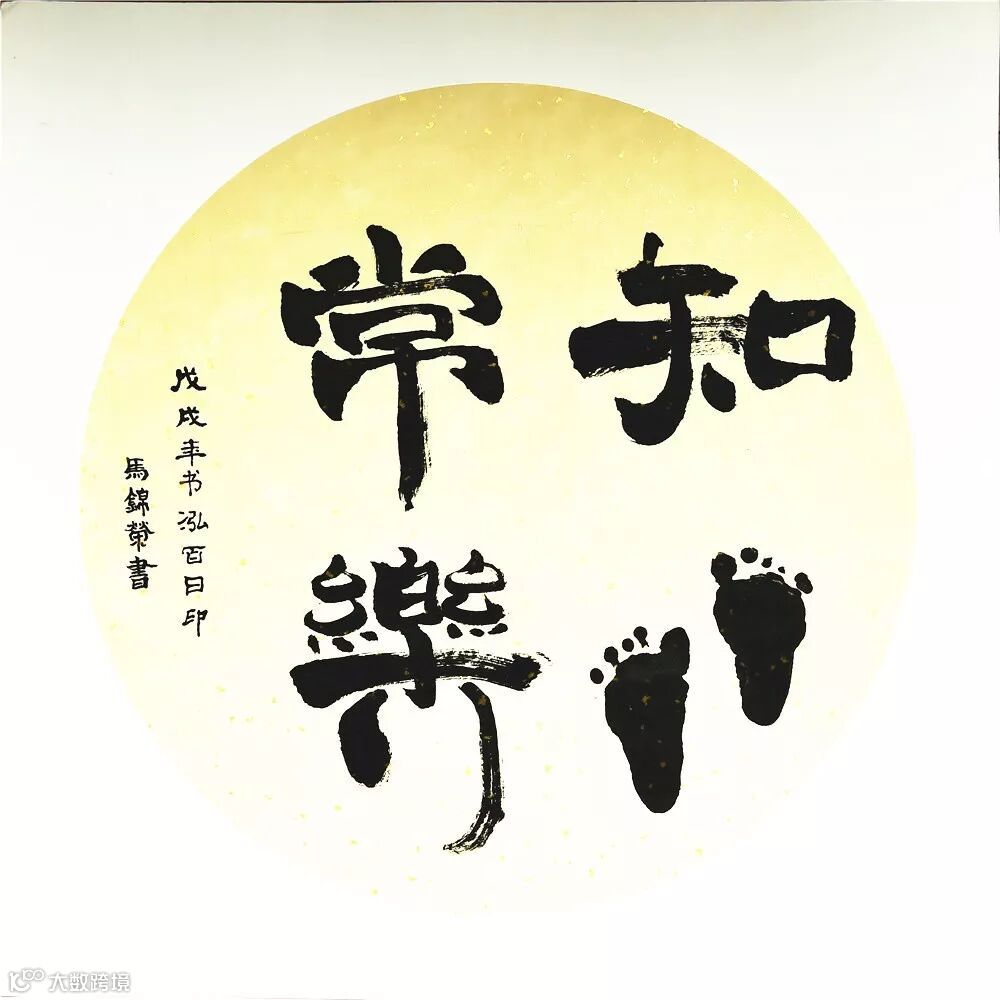 知
常樂
戊戌年书泓百日印
馬錦榮書
大数跨境